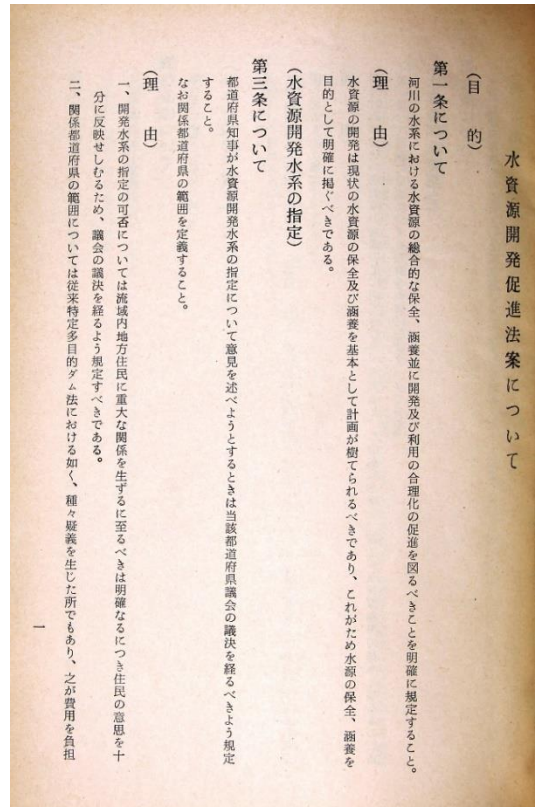 水資源開発促進法案について
（目　的）
第一条について
河川の水系における水資源の総合的な保全、涵養並に開発及び利用の合理化の促進を図るべきことを明確に規定すること。
（理　由）
水資源の開発は現状の水資源の保全及び涵養を基本として計画が樹てられるべきであり、これがため水源の保全、涵養を
目的として明確に掲ぐべきである。
（水資源開発水系の指定）
第三条について
都道府県知事が水資源開発水系の指定について意見を述べようとするときは当該都道府県議会の議決を経るべきよう規定
すること。
なお関係都道府県の範囲を定義すること。
（理　由）
一、開発水系の指定の可否については流域内地方住民に重大な関係を生ずるに至るべきは明確なるにつき住民の意思を十
分に反映せしむるため、議会の議決を経るよう規定すべきである。
二、関係都道府県の範囲については従来特定多目的ダム法における如く、種々疑義を生じた所でもあり、之が費用を負担
一